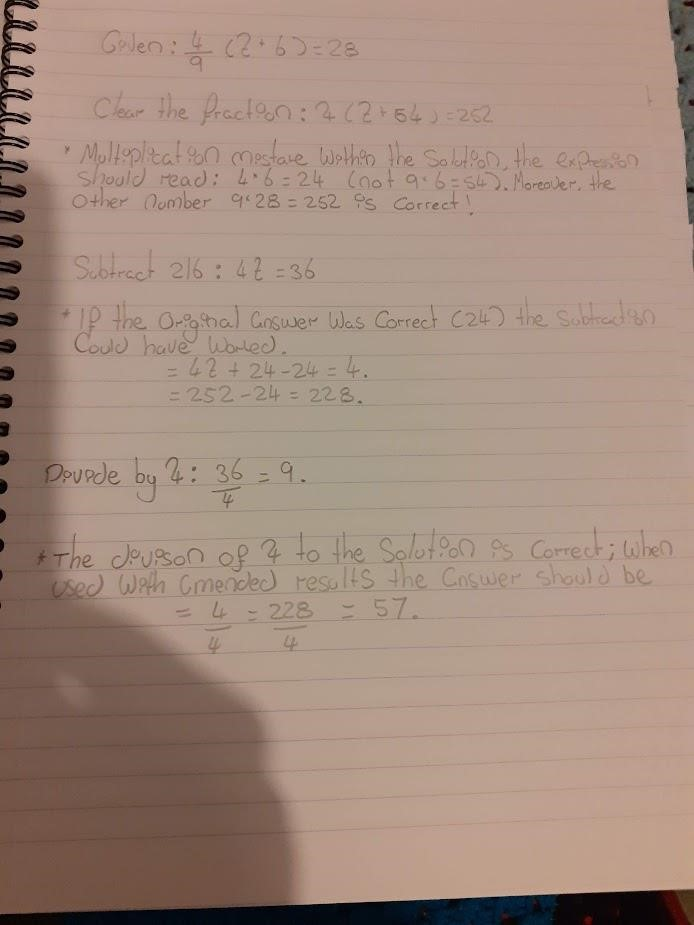 Given: 4/9 (z + 6) = 28
Clear the fraction: 4 (z + 54) = 252
* Multiplication mistake within the solution, the expression
should read: 4·6 = 24 (not 9·6 = 54). Moreover, the
other number 9·28 = 252 is correct!
Subtract 216 : 4z = 36
* If the original answer was correct (24) the subtraction
could have worked.
= 4z + 24 - 24 = 4.
= 252 - 24 = 228.
Devide by 4: 36/4 = 9.
* The devison of 4 to the solution is correct; when
used with amended results the answer should be
= 4/4 = 228/4 = 57.